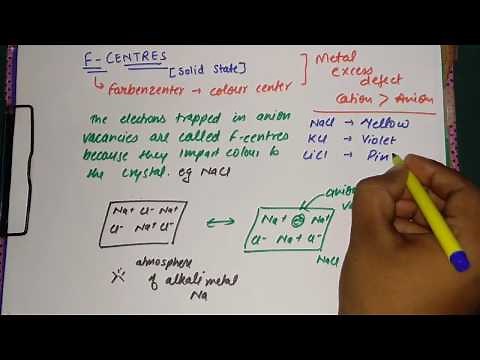 F-CENTRES
[Solid State]
Farbenzenter → colour center
Metal
excess
defect
Cation > Anion
The electrons trapped in anion
vacancies are called F-centres
because they impart colour to
the crystal. eg NaCl
NaCl → Yellow
KCl → Violet
LiCl → Pin
anion
Na+ Cl- Na+
Cl- Na+ Cl-
↔
Na+ e- Na+
Cl- Na+ Cl-
NaCl
atmosphere
of alkali metal
Na